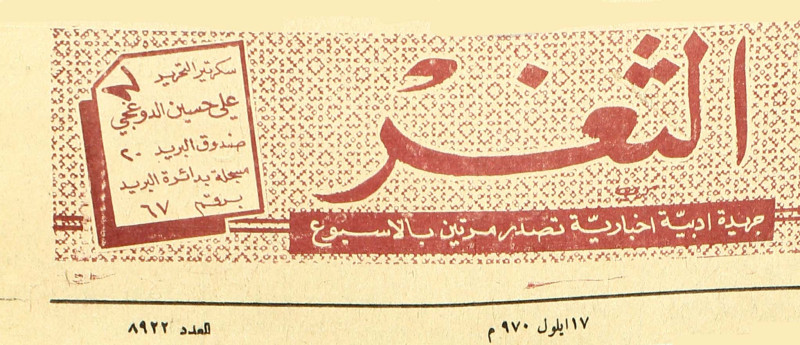 الثغر
جريدة ادبيّة اخباريّة تصدر مرتين بالاسبوع
سكرتير التحرير
علي حسين الدوغجي
صندوق البريد ٢٠
مسجلة بدائرة البريد
برقم ٦٧
١٧ ايلول ٩٧٠ م
العدد ٨٩٢٢